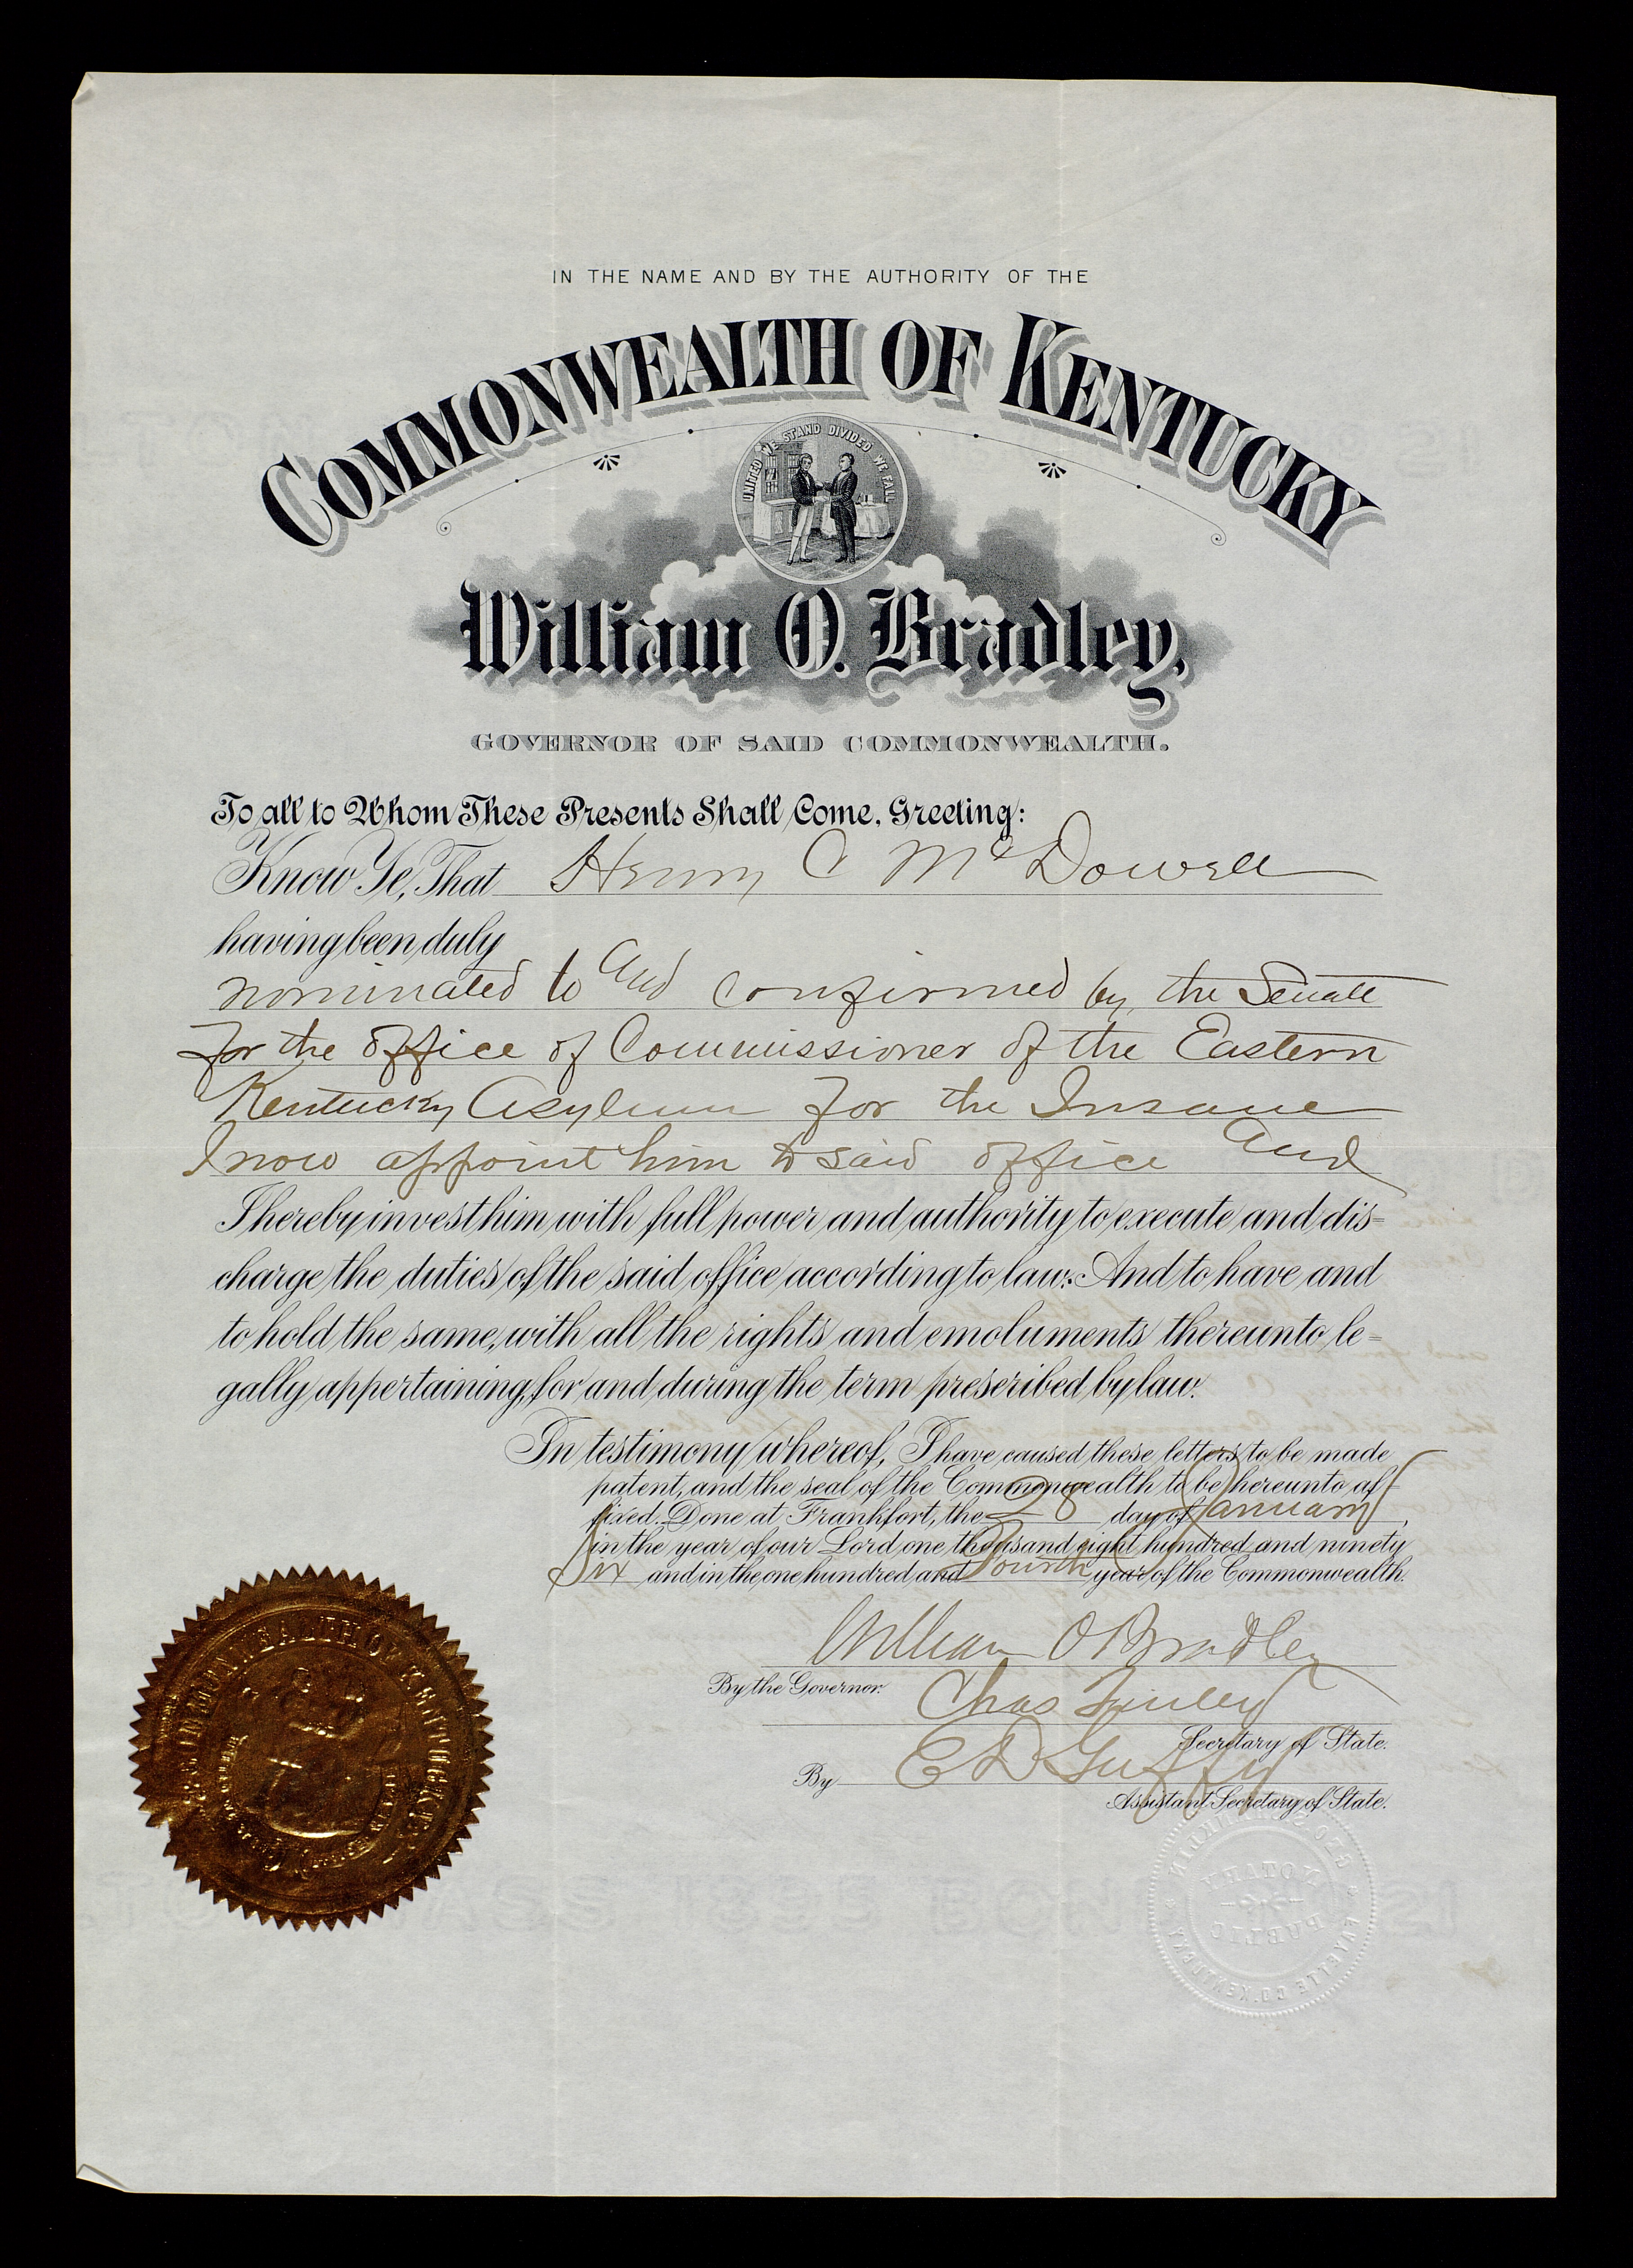 IN THE NAME AND BY THE AUTHORITY OF THE
COMMONWEALTH OF KENTUCKY
UNITED WE STAND DIVIDED WE FALL
William O. Bradley,
GOVERNOR OF SAID COMMONWEALTH.
To all to Whom These Presents Shall Come, Greeting:
Know Ye, That Henry C McDowell
having been duly
nominated to and confirmed by the Senate
for the office of Commissioner of the Eastern
Kentucky Asylum for the Insane
I now appoint him to said office and
I hereby invest him with full power and authority to execute and dis=
charge the duties of the said office according to law: And to have and
to hold the same, with all the rights and emoluments thereunto le=
gally appertaining, for and during the term prescribed by law.
In testimony whereof, I have caused these letters to be made
patent, and the seal of the Commonwealth to be hereunto af-
fixed. Done at Frankfort, the 28 day of January,
in the year of our Lord one thousand eight hundred and ninety
Six and in the one hundred and Fourth year of the Commonwealth.
William O Bradley
By the Governor.
Chas Finley
Secretary of State.
By E D Guffy
Assistant Secretary of State.
COMMONWEALTH OF KENTUCKY
NOTARY
PUBLIC
FAYETTE CO. KENTUCKY